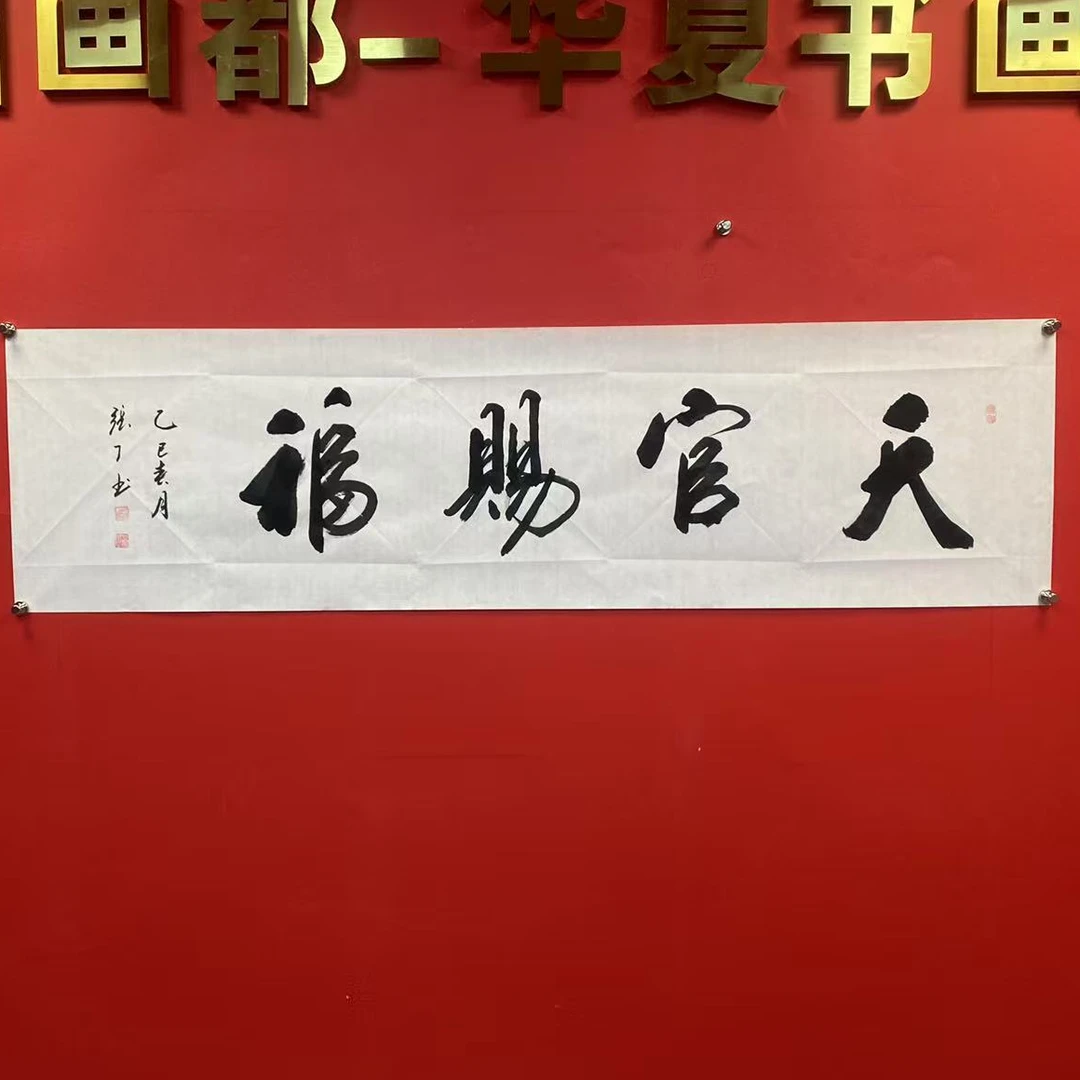 画都—华夏书画
天官賜福
乙巳春月
张丁书